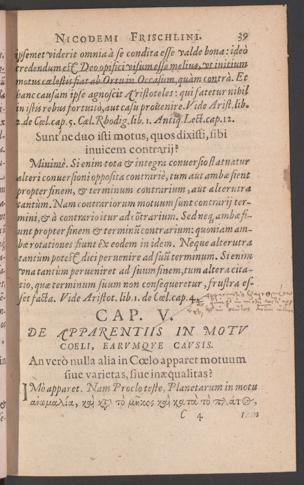 NICODEMI FRISCHLINI. 39
ipsemet viderit omnia à se condita esse valde bona: ideò
credendum est Deo opifici visum esse melius, vt initium
motus cœlestis fiat ab Ortu in Occasum, quàm contrà. Et
hanc causam ipse agnoscit Aristoteles: qui fatetur nihil
in istis rebus fortuitò, aut casu prouenire. Vide Arist. lib.
2. de Cœl. cap. 5. Cæl. Rhodig. lib. 1. Antiq. Lect. cap. 12.
Sunt'ne duo isti motus, quos dixisti, sibi
inuicem contrarij?
Minimè. Si enim tota & integra conuersio statuatur
alteri conuersioni opposita contrariè, tum aut ambæ fient
propter finem, & terminum contrarium, aut alterutra
tantùm. Nam contrariorum motuum sunt contrarij ter-
mini, & à contrario itur ad cōtrarium. Sed neq, ambæ fi-
unt propter finem & terminū contrarium: quoniam am-
bæ rotationes fiunt ex eodem in idem. Neque alterutra
tantùm potest dici peruenire ad suū terminum. Si enim
vna tantùm perueniret ad suum finem, tum altera cita-
tio, quæ terminum suum non consequeretur, frustra es-
set facta. Vide Aristot. lib. 1. de Cœl. cap. 4.
CAP. V.
DE APPARENTIIS IN MOTV
COELI, EARVMQVE CAVSIS.
An verò nulla alia in Cœlo apparet motuum
siue varietas, siue inæqualitas?
IMò apparet. Nam Proclo teste, Planetarum in motu
ἀνωμαλία, καὶ κτ̀ τὸ μῆκος καὶ κατὰ τὸ πλάτος,
C 4